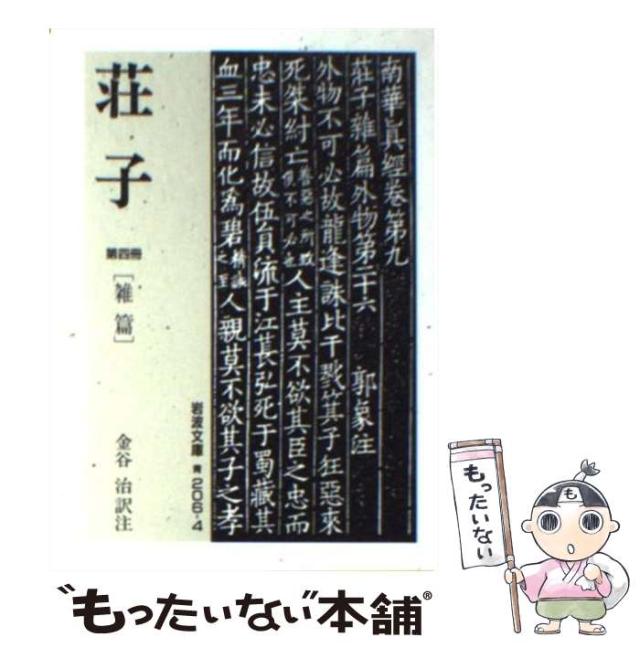 荘子
第四冊
［雑篇］
金谷 治訳注
岩波文庫 青206-4
南華真經卷第九
莊子雜篇外物第二十六 郭象注
外物不可必故龍逢誅比干戮箕子狂惡來
死桀紂亡善惡之所致俱不可必也人主莫不欲其臣之忠而
忠未必信故伍員流于江萇弘死于蜀藏其
血三年而化爲碧精誠之至人親莫不欲其子之孝
も
もったいない
"もったいない"本舗®